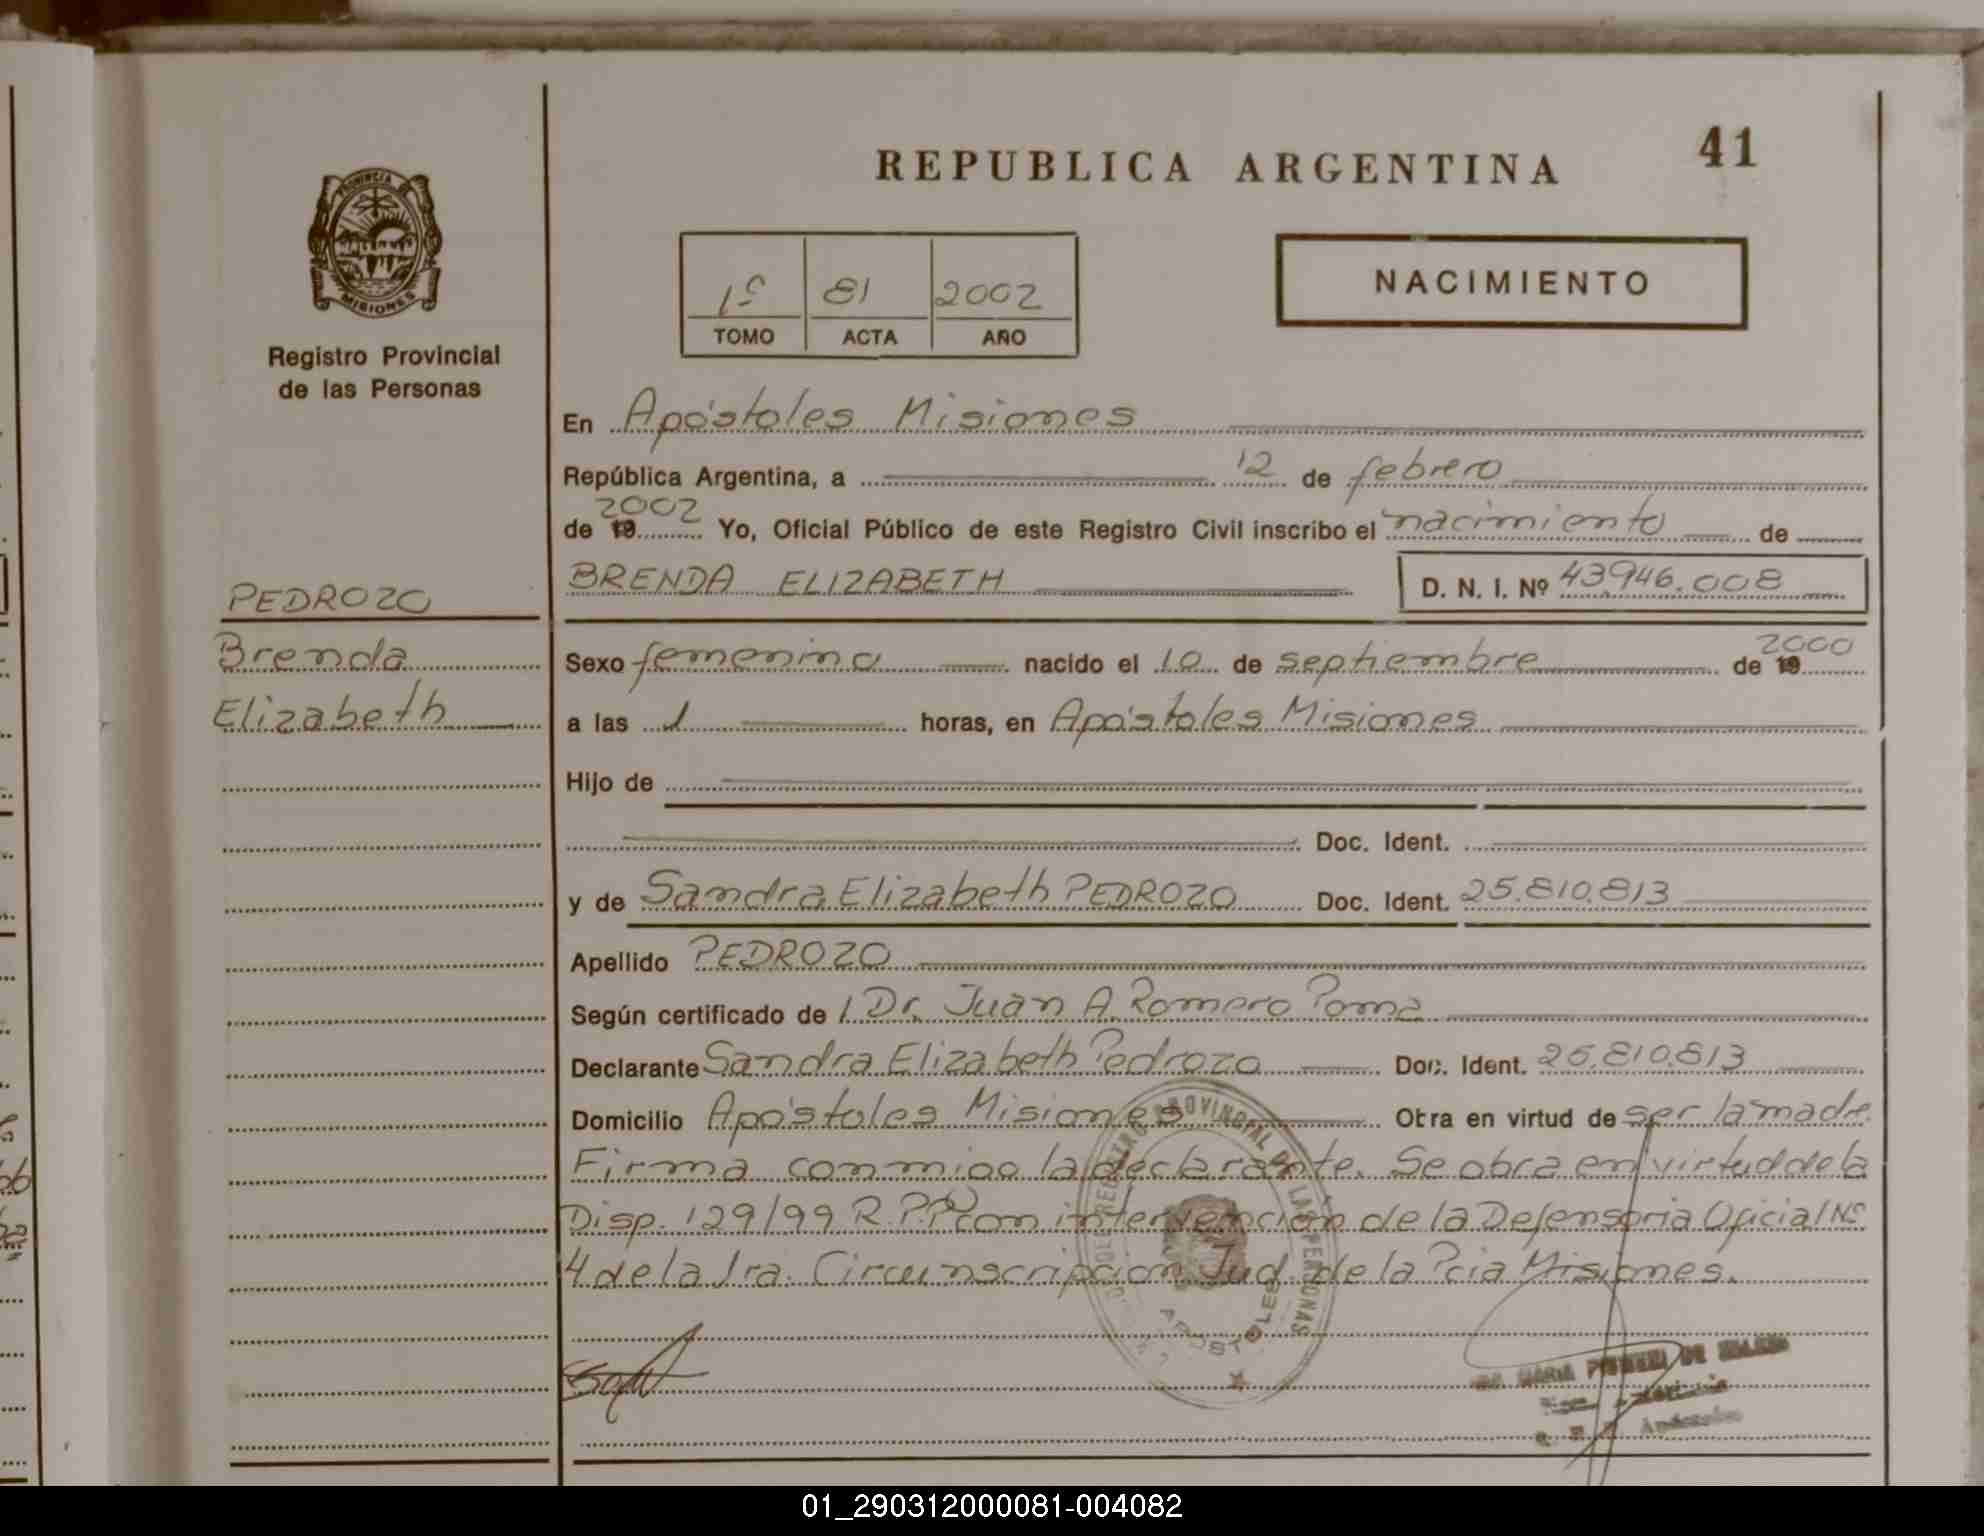 REPUBLICA ARGENTINA
41
PROVINCIA
MISIONES
Registro Provincial
de las Personas
1º 81 2002
TOMO ACTA AÑO
NACIMIENTO
En Apóstoles Misiones
República Argentina, a 12 de febrero
de 19 2002 Yo, Oficial Público de este Registro Civil inscribo el nacimiento de
BRENDA ELIZABETH D. N. I. Nº 43946.008
PEDROZO
Brenda
Elizabeth
Sexo femenino nacido el 10 de septiembre de 19 2000
a las 1 horas, en Apóstoles Misiones
Hijo de
Doc. Ident.
y de Sandra Elizabeth PEDROZO Doc. Ident. 25.810.813
Apellido PEDROZO
Según certificado de / Dr. Juan A. Romero Poma
Declarante Sandra Elizabeth Pedrozo Doc. Ident. 25.810.813
Domicilio Apóstoles Misiones Obra en virtud de ser la madre.
Firma conmigo la declarante. Se obra en virtud de la
Disp. 129/99 R.P.P. con intervención de la Defensoria Oficial Nº
4 de la 1ra. Circunscripcion Jud. de la Pcia Misiones.
REGISTRO PROVINCIAL DE LAS PERSONAS
APOSTOLES
MARIA DE
01_290312000081-004082